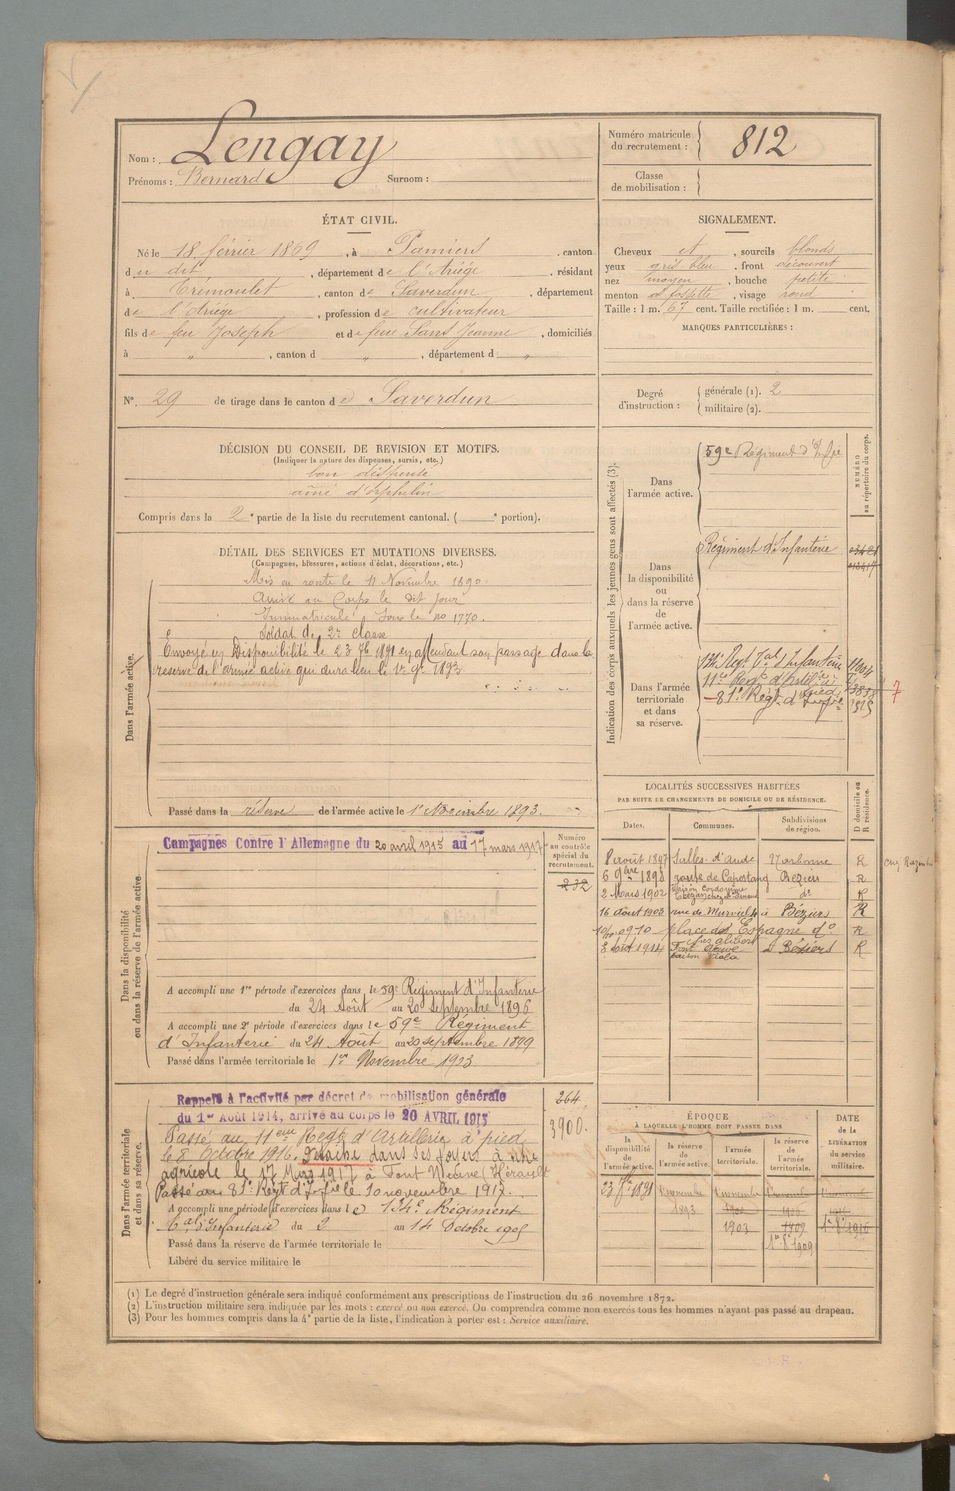 Nom : Lengay
Prénoms : Bernard Surnom :
Numéro matricule du recrutement : 812
Classe de mobilisation :
ÉTAT CIVIL.
Né le 18 février 1869, à Pamiers, canton
du dit, département de l'Ariége, résidant
à Tremoulet, canton de Saverdun, département
de l'Ariége, profession de cultivateur
fils de feu Joseph et de feue Sans Jeanne, domiciliés
à " , canton d " , département d "
SIGNALEMENT.
Cheveux et, sourcils blonds
yeux gris bleu, front découvert
nez moyen, bouche petite
menton à fossette, visage rond
Taille : 1 m. 67 cent. Taille rectifiée : 1 m. cent.
MARQUES PARTICULIÈRES :
N°. 29 de tirage dans le canton de Saverdun
Degré d'instruction : générale (1). 2
militaire (2).
DÉCISION DU CONSEIL DE REVISION ET MOTIFS.
(Indiquer la nature des dispenses, sursis, etc.)
bon dispensé
ainé d'orphelin
Compris dans la 2e partie de la liste du recrutement cantonal. ( e portion).
DÉTAIL DES SERVICES ET MUTATIONS DIVERSES.
(Campagnes, blessures, actions d'éclat, décorations, etc.)
Dans l'armée active.
Mis en route le 11 Novembre 1890.
Arrivé au Corps le dit jour
Immatriculé sous le no 1770.
Soldat de 2e classe
Envoyé en Disponibilité le 23 7b 1891 en attendant son passage dans la
réserve de l'armée active qui aura lieu le 1er 9b 1893
Passé dans la réserve de l'armée active le 1er Novembre 1893.
Indication des corps auxquels les jeunes gens sont affectés (3).
NUMÉRO au répertoire du corps.
Dans l'armée active.
59e Régiment d'Infie
Dans la disponibilité ou dans la réserve de l'armée active.
Régiment d'Infanterie
Dans l'armée territoriale et dans sa réserve.
134e Regt Tal d'Infanterie
11eme Regt d'Artillerie à pied
81e Régt d'Infie
7
LOCALITÉS SUCCESSIVES HABITÉES
PAR SUITE DE CHANGEMENTS DE DOMICILE OU DE RÉSIDENCE.
Dates. Communes. Subdivisions de région. D domicile ou R résidence.
8 août 1897 Salles d'Aude Narbonne R
6 9bre 1898 route de Capestang Beziers R
2 Mars 1902 do R
16 août 1903 rue de Murviel 4 à Béziers R
1910 place d'Espagne do R
8 août 1914 à Béziers R
Dans la disponibilité ou dans la réserve de l'armée active
Campagnes Contre l'Allemagne du 20 avril 1915 au 17 mars 1917
Numéro au contrôle spécial du recrutement.
232
A accompli une 1re période d'exercices dans le 59e Régiment d'Infanterie
du 24 Août au 20 septembre 1896
A accompli une 2e période d'exercices dans le 59e Régiment
d'Infanterie du 24 Août au 20 septembre 1899
Passé dans l'armée territoriale le 1er Novembre 1903
Dans l'armée territoriale et dans sa réserve.
Rappelé à l'activité par décret de mobilisation générale
du 1er Août 1914, arrivé au corps le 20 AVRIL 1915
264
3900.
Passé au 11eme Regt d'Artillerie à pied
le 8 Octobre 1916. Détaché dans ses foyers
agricole le 17 Mars 1917 à Font Neuve (Hérault
Passé au 81e Régt d'Infie le 10 novembre 1917.
A accompli une période d'exercices dans le 134e Régiment
Tal d'Infanterie du 2 au 14 Octobre 1905
Passé dans la réserve de l'armée territoriale le
Libéré du service militaire le
ÉPOQUE
À LAQUELLE L'HOMME DOIT PASSER DANS
la disponibilité de l'armée active.
la réserve de l'armée active.
l'armée territoriale.
la réserve de l'armée territoriale.
DATE de la LIBÉRATION du service militaire.
23 7bre 1891
1893
1903
(1) Le degré d'instruction générale sera indiqué conformément aux prescriptions de l'instruction du 26 novembre 1872.
(2) L'instruction militaire sera indiquée par les mots : exercé ou non exercé. On comprendra comme non exercés tous les hommes n'ayant pas passé au drapeau.
(3) Pour les hommes compris dans la 4e partie de la liste, l'indication à porter est : Service auxiliaire.